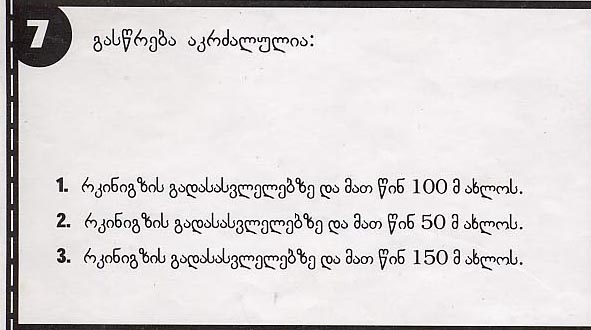 7
გასწრება აკრძალულია:
1. რკინიგზის გადასასვლელებზე და მათ წინ 100 მ ახლოს.
2. რკინიგზის გადასასვლელებზე და მათ წინ 50 მ ახლოს.
3. რკინიგზის გადასასვლელებზე და მათ წინ 150 მ ახლოს.